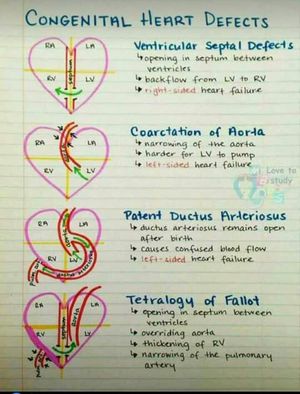 CONGENITAL HEART DEFECTS
RA LA
septum
RV LV
Ventricular Septal Defects
↳ opening in septum between
ventricles
↳ backflow from LV to RV
↳ right-sided heart failure
RA LA
aorta
RV LV
Coarctation of Aorta
↳ narrowing of the aorta
↳ harder for LV to pump
↳ left-sided heart failure
Love to
study
RA LA
aorta
RV LV
Patent Ductus Arteriosus
↳ ductus arteriosus remains open
after birth
↳ causes confused blood flow
↳ left-sided heart failure
RA LA
septum
aorta
RV LV
Tetralogy of Fallot
↳ opening in septum between
ventricles
↳ overriding aorta
↳ thickening of RV
↳ narrowing of the pulmonary
artery